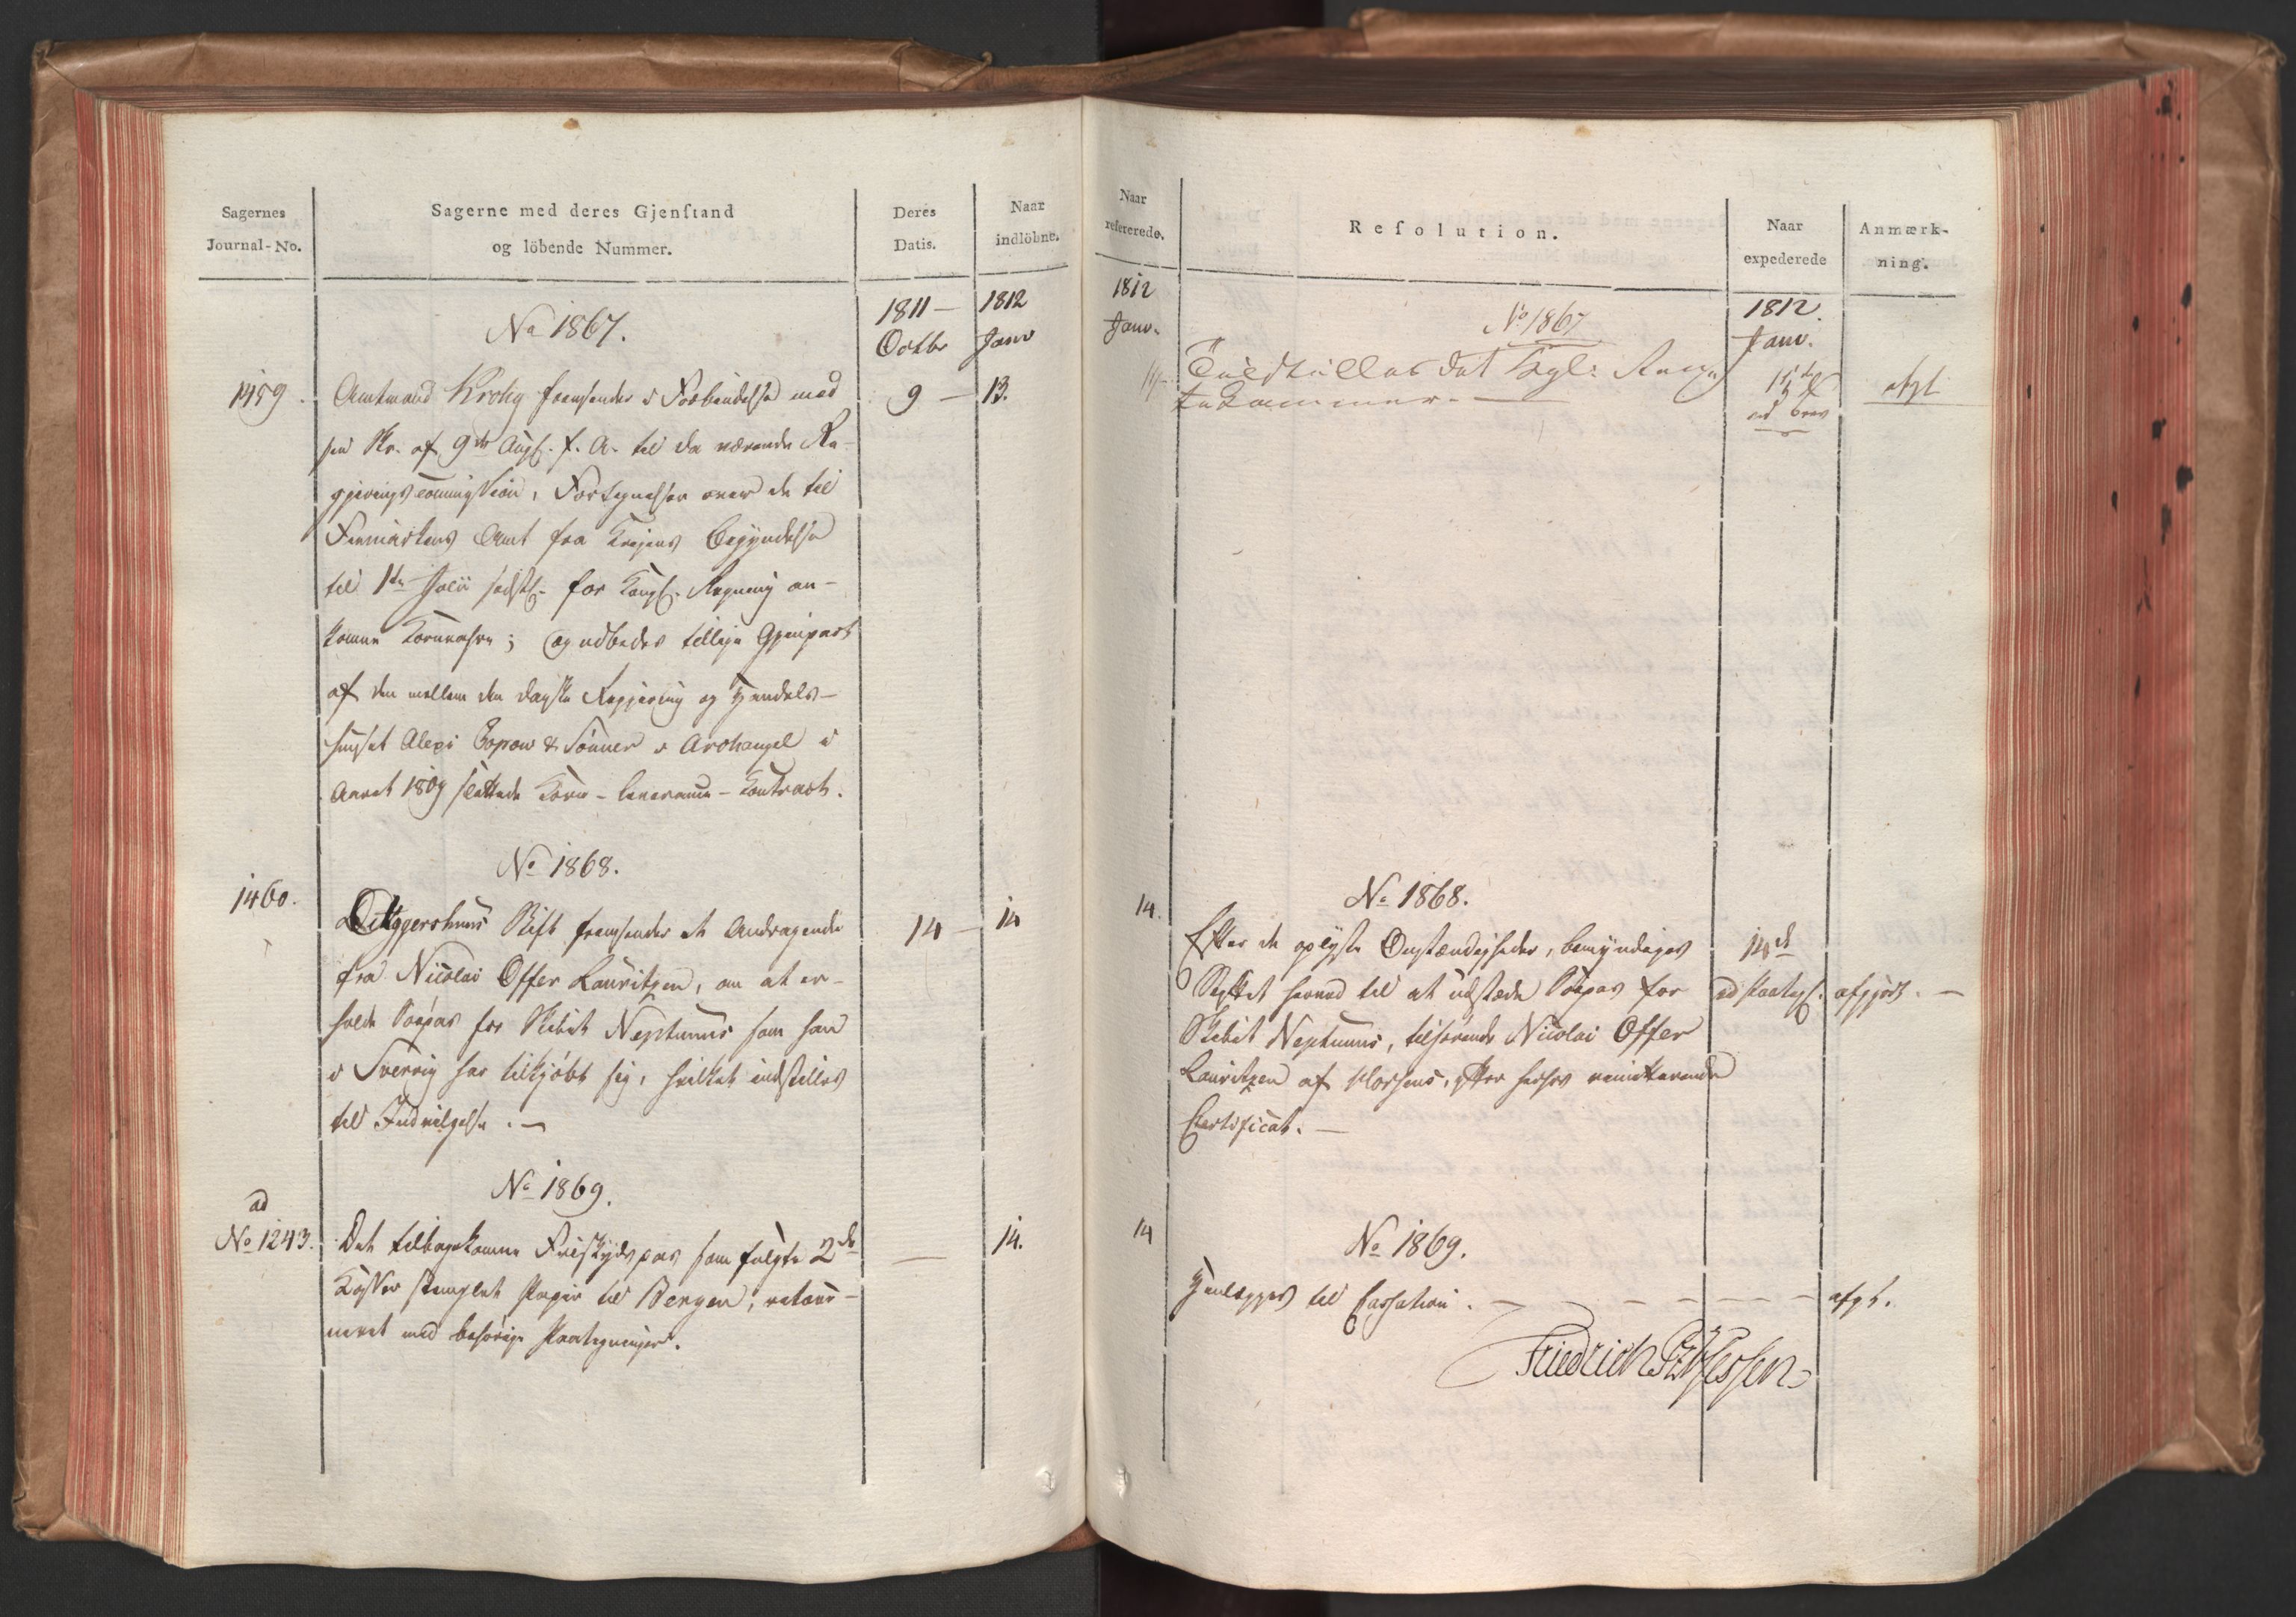 Sagernes
Journal-No.
Sagerne med deres Gjenstand
og löbende Nummer.
Deres
Datis.
Naar
indlöbne.
1811 —
Octbr
1812
Janv
No 1867.
1459.
Amtmand Krohg fremsender i Forbindelse med
sin Skr. af 9de Augs. f. A. til da værende Re-
gjeringscommission, Fortegnelser over de til
Finmarkens Amt fra Krigens Begyndelse
til 1ste Julii sidstl. for Kongl. Regning an-
komne Kornvahre; og udbeder tillige Gjenpart
af den mellem den danske Regjering og Handels-
huuset Alexi Popow & Sönner i Archangel i
Aaret 1809 sluttede Korn-leverance-Kontract.
9 —
13.
No 1868.
1460.
Aggershuus Stift fremsender et Andragende
fra Nicolai Offer Lauritzen, om at er-
holde Söepas for Skibet Neptunus som han
i Sverrig har tilkjöbt sig, hvilket indstilles
til Indvilgelse. —
14 —
14
No 1869.
ad
No 1243.
Det tilbagekomne Friskydspas som fulgte 2de
Kasser stemplet Papir til Bergen, retour-
neret med behörige Paategninger.
—
14.
Naar
refererede.
Resolution.
Naar
expederede
Anmærk-
ning.
1812
Janv.
1812.
Janv.
No 1867
14
Tilstilles det Kgl. Rente
kammer. —
15de
ad brev
afgl
No 1868.
14.
Efter de oplyste Omstændigheder, bemyndiges
Stiftet herved til at udstæde Söepas for
Skibet Neptunus, tilhörende Nicolai Offer
Lauritzen af Horsens, efter hoshos remitterende
Certificat. —
14de
ad Paategn.
afgjort. —
No 1869.
14
Henlægges til Cassation. — — — — —
afgt.
Friedrich PzHessen